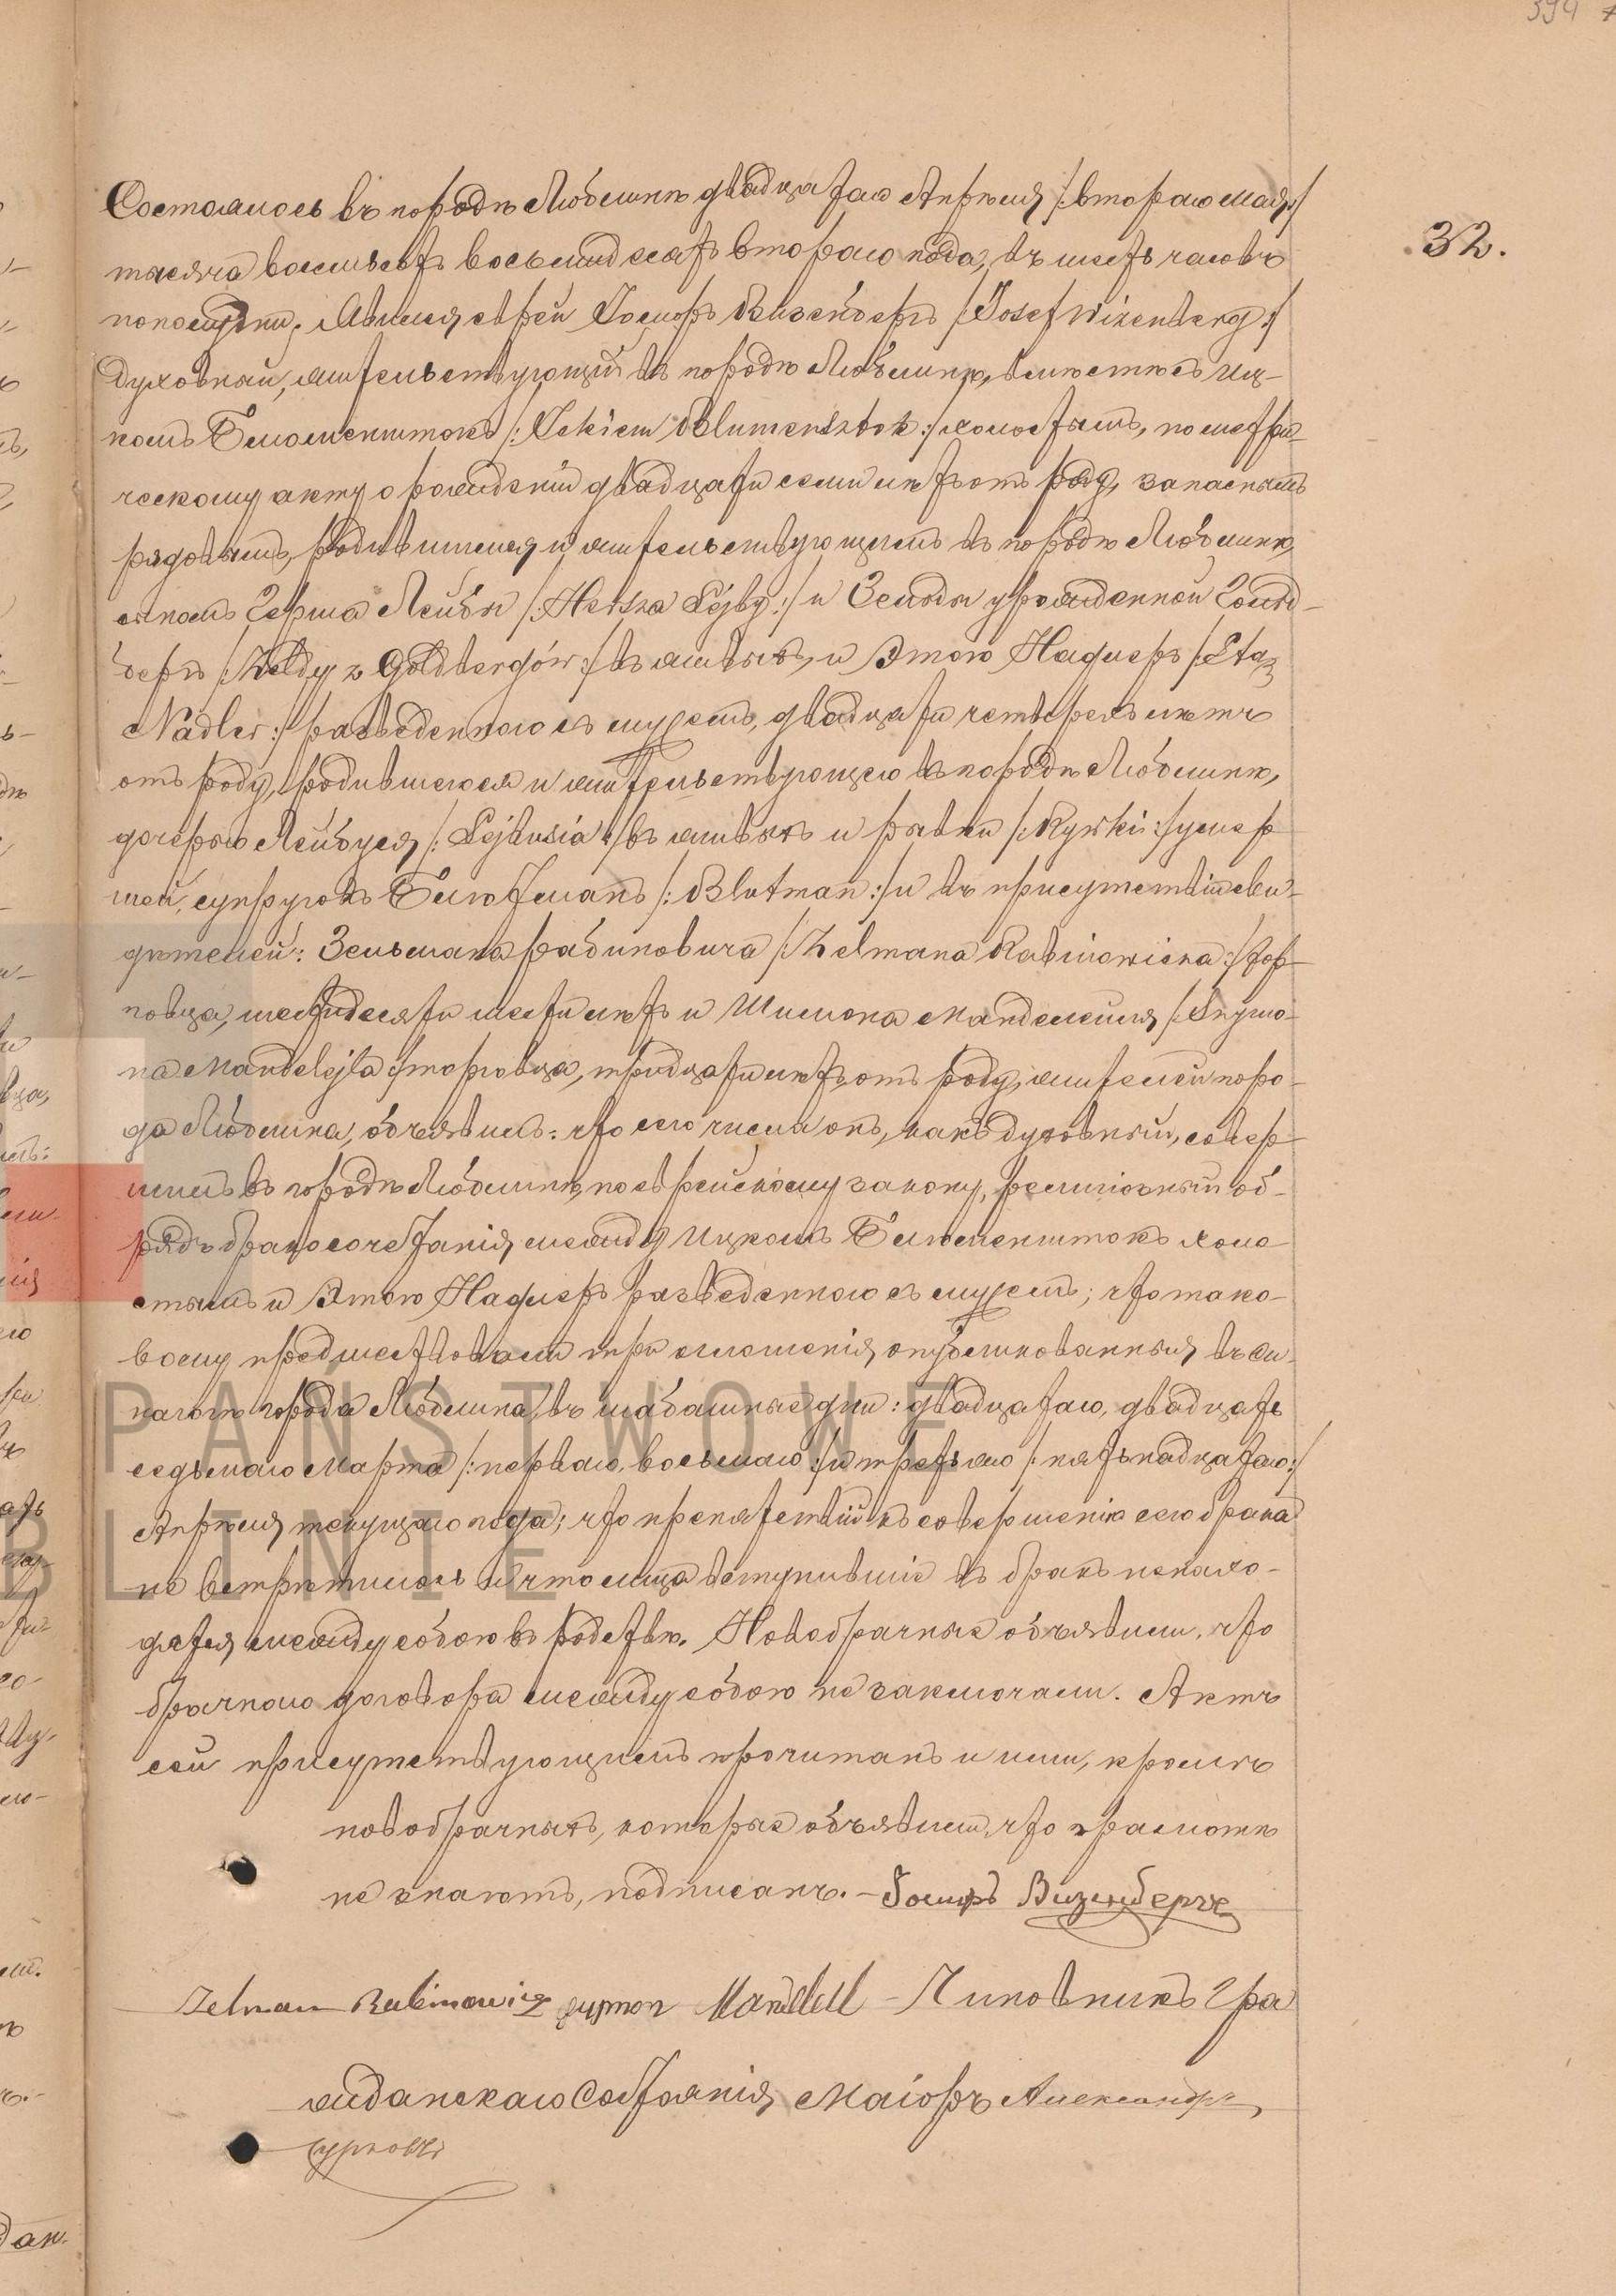 394
32.
Состоялось въ городѣ Люблинѣ двадцатаго Апрѣля /:втораго Мая:/
тысяча восемьсотъ восемьдесятъ втораго года, въ шесть часовъ
пополудни. Явился еврей Іосифъ Визенбергъ /:Josef Wizenberg:/
Духовный, жительствующій въ городѣ Люблинѣ, вмѣстѣ съ Иц-
комъ Блюменштокъ /:Ickiem Blumensztok:/ холостымъ, по метри-
ческому акту о рожденіи двадцати семи лѣтъ отъ роду, запаснымъ
рядовымъ, родившимся и жительствующимъ въ городѣ Люблинѣ,
сыномъ Герша Лейбы /:Herszka Lejby:/ и Зельды урожденной Гольд-
бергъ /:Zeldy z Goldbergów:/ въ живыхъ, и Этою Надлеръ /:Etą
Nadler:/ разведенною съ мужемъ, двадцати четырехъ лѣтъ
отъ роду, родившеюся и жительствующею въ городѣ Люблинѣ,
дочерью Лейбуся /:Lejbusia:/ въ живыхъ и Рывки /:Rywki:/ умер-
шей, супруговъ Блютманъ /:Blutman:/ и въ присутствіи сви-
дѣтелей: Зельмана Рабиновича /:Zelmana Rabinowicza:/ тор-
говца, шестидесяти шести лѣтъ и Шимона Мандельейля /:Szymo-
na Mandelejla:/ торговца, тридцати лѣтъ отъ роду, жителей горо-
да Люблина, объявилъ: что сего числа онъ, какъ духовный, совер-
шилъ въ городѣ Люблинѣ, по еврейскому закону, религіозный об-
рядъ бракосочетанія между Ицкомъ Блюменштокъ холо-
стымъ и Этою Надлеръ разведенною съ мужемъ; что тако-
вому предшествовали три оглашенія опубликованныя въ си-
нагогѣ города Люблина, въ шабашные дни: двадцатаго, двадцать
седьмаго Марта /:перваго, восьмаго:/ и третьяго /:пятьнадцатаго:/
Апрѣля текущаго года; что препятствій къ совершенію сего брака
не встрѣтилось и что лица вступившіе въ бракъ не нахо-
дятся между собою въ родствѣ. Новобрачные объявили, что
брачнаго договора между собою не заключали. Актъ
сей присутствующимъ прочитанъ и ими, кромѣ
новобрачныхъ, которые объявили, что грамотѣ
не знаютъ, подписанъ. – Іосифъ Визенбергъ
Zelman Rabinowicz Szymon Mandell – Чиновникъ Гра
жданскаго Состоянія Маіоръ Александръ
PAŃSTWOWE
BLINIE